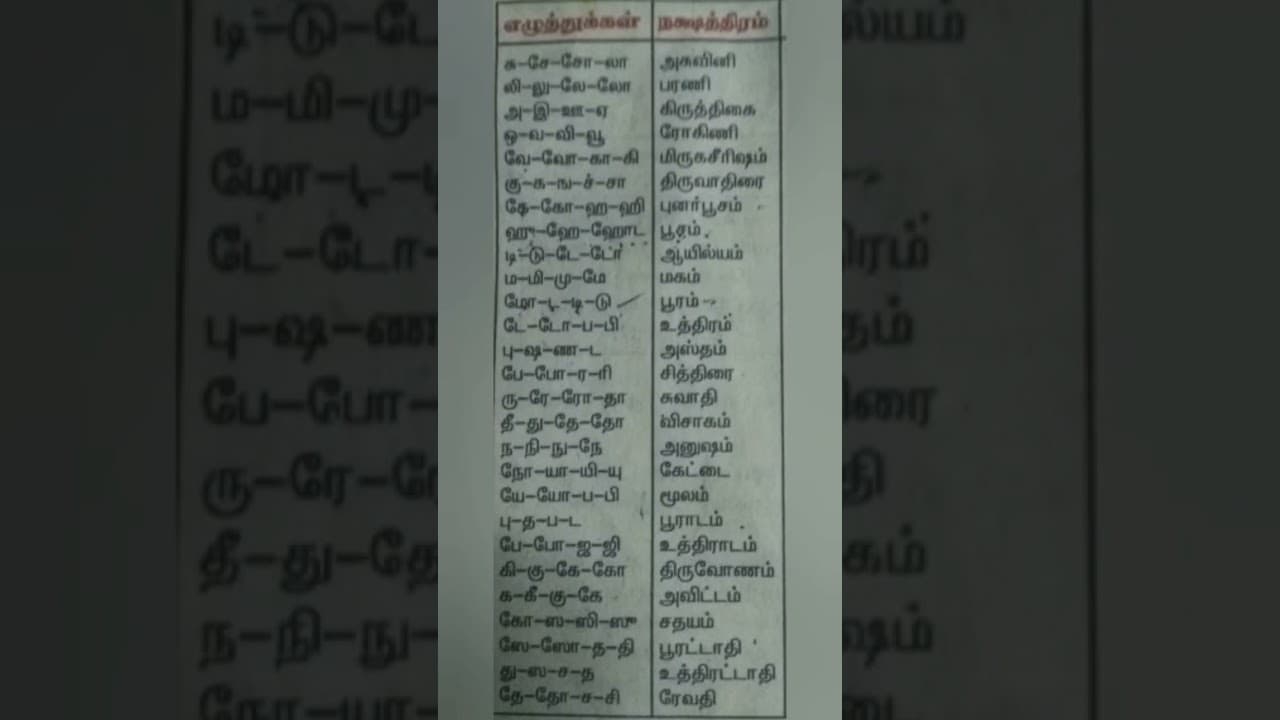 எழுத்துக்கள் நக்ஷத்திரம்
சு-சே-சோ-லா அசுவினி
லி-லு-லே-லோ பரணி
அ-இ-ஊ-ஏ கிருத்திகை
ஒ-வ-வி-வூ ரோகிணி
வே-வோ-கா-கி மிருகசீரிஷம்
கு-க-ங-ச்-சா திருவாதிரை
கே-கோ-ஹ-ஹி புனர்பூசம்
ஹு-ஹே-ஹோட பூசம்
டி-டு-டே-டோ ஆயில்யம்
ம-மி-மு-மே மகம்
மோ-ட-டி-டு பூரம்
டே-டோ-ப-பி உத்திரம்
பு-ஷ-ண-ட அஸ்தம்
பே-போ-ர-ரி சித்திரை
ரு-ரே-ரோ-தா சுவாதி
தீ-து-தே-தோ விசாகம்
ந-நி-நு-நே அனுஷம்
நோ-யா-யி-யு கேட்டை
யே-யோ-ப-பி மூலம்
பு-த-ப-ட பூராடம்
பே-போ-ஜ-ஜி உத்திராடம்
கி-கு-கே-கோ திருவோணம்
க-கீ-கு-கே அவிட்டம்
கோ-ஸ-ஸி-ஸு சதயம்
ஸே-ஸோ-த-தி பூரட்டாதி
து-ஸ-ச-த உத்திரட்டாதி
தே-தோ-ச-சி ரேவதி